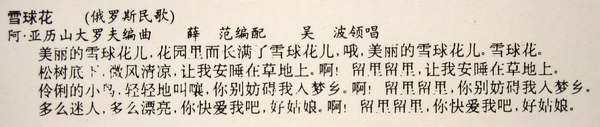 雪球花 (俄罗斯民歌)
阿·亚历山大罗夫编曲 薛 范编配 吴 波领唱
美丽的雪球花儿,花园里而长满了雪球花儿,哦,美丽的雪球花儿。雪球花。
松树底下,微风清凉,让我安睡在草地上。啊!留里留里,让我安睡在草地上。
伶俐的小鸟,轻轻地叫嚷,你别妨碍我入梦乡。啊!留里留里,你别妨碍我入梦乡。
多么迷人,多么漂亮,你快爱我吧,好姑娘。啊!留里留里,你快爱我吧,好姑娘。